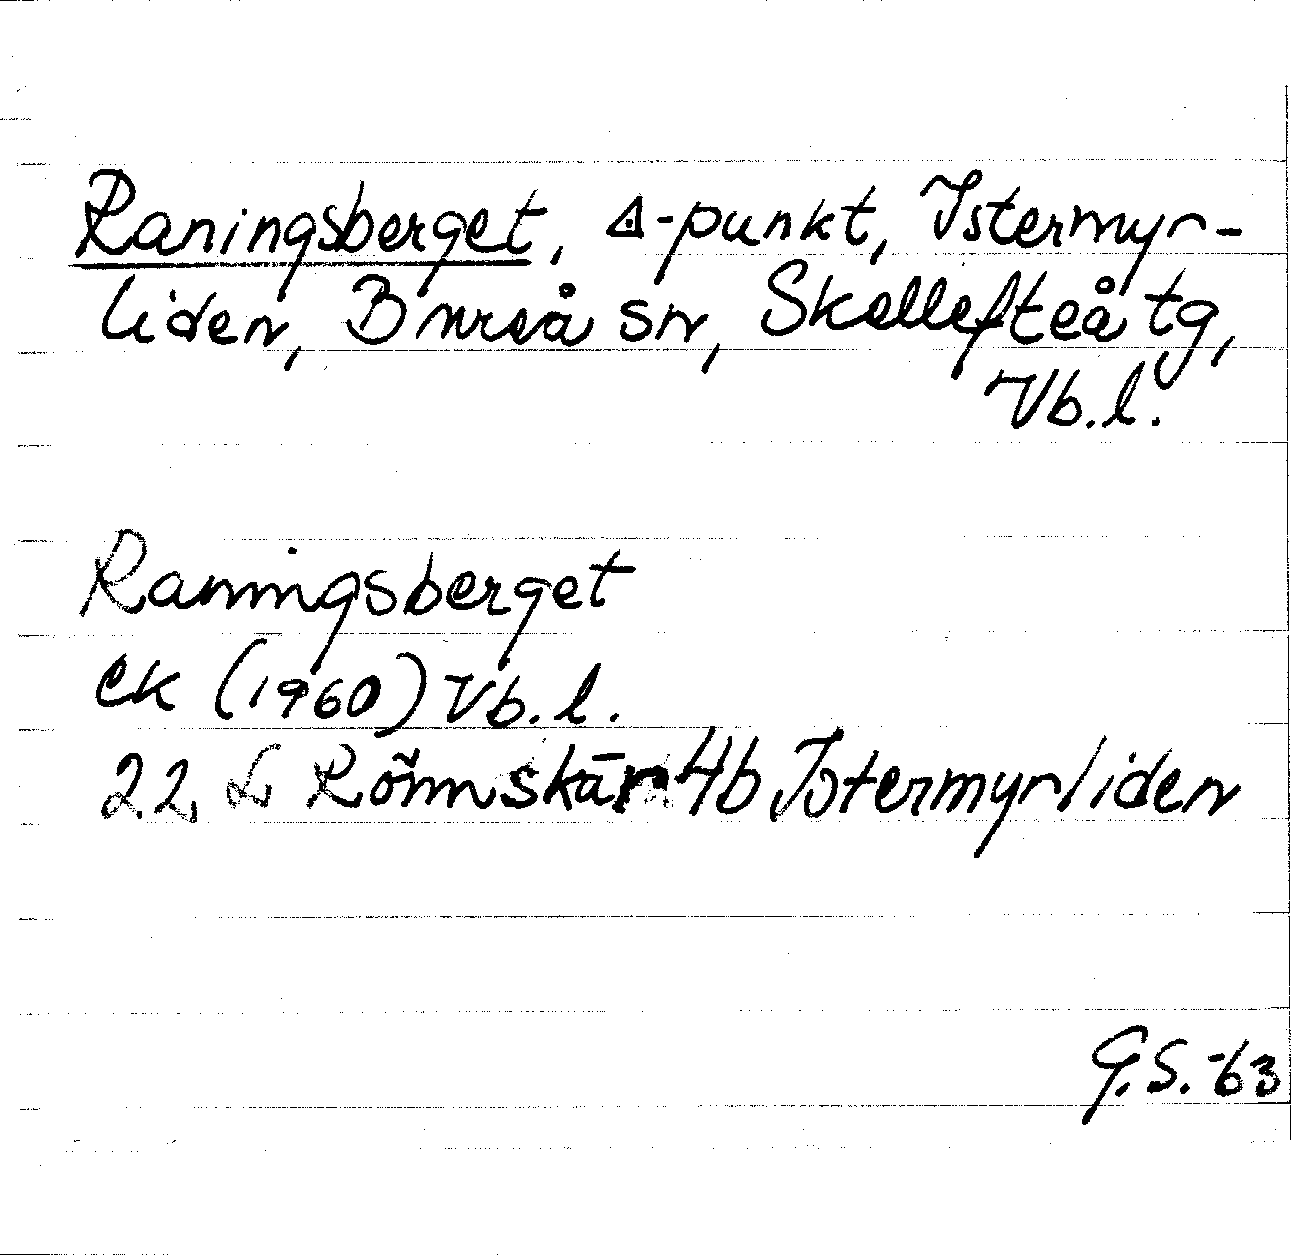 Raningsberget, ◬-punkt, Istermyr-
liden, Bureå sn, Skellefteå tg,
Vb.l.
Raningsberget
ek (1960) Vb.l.
22 L Rönnskär 4b Istermyrliden
G.S. -63